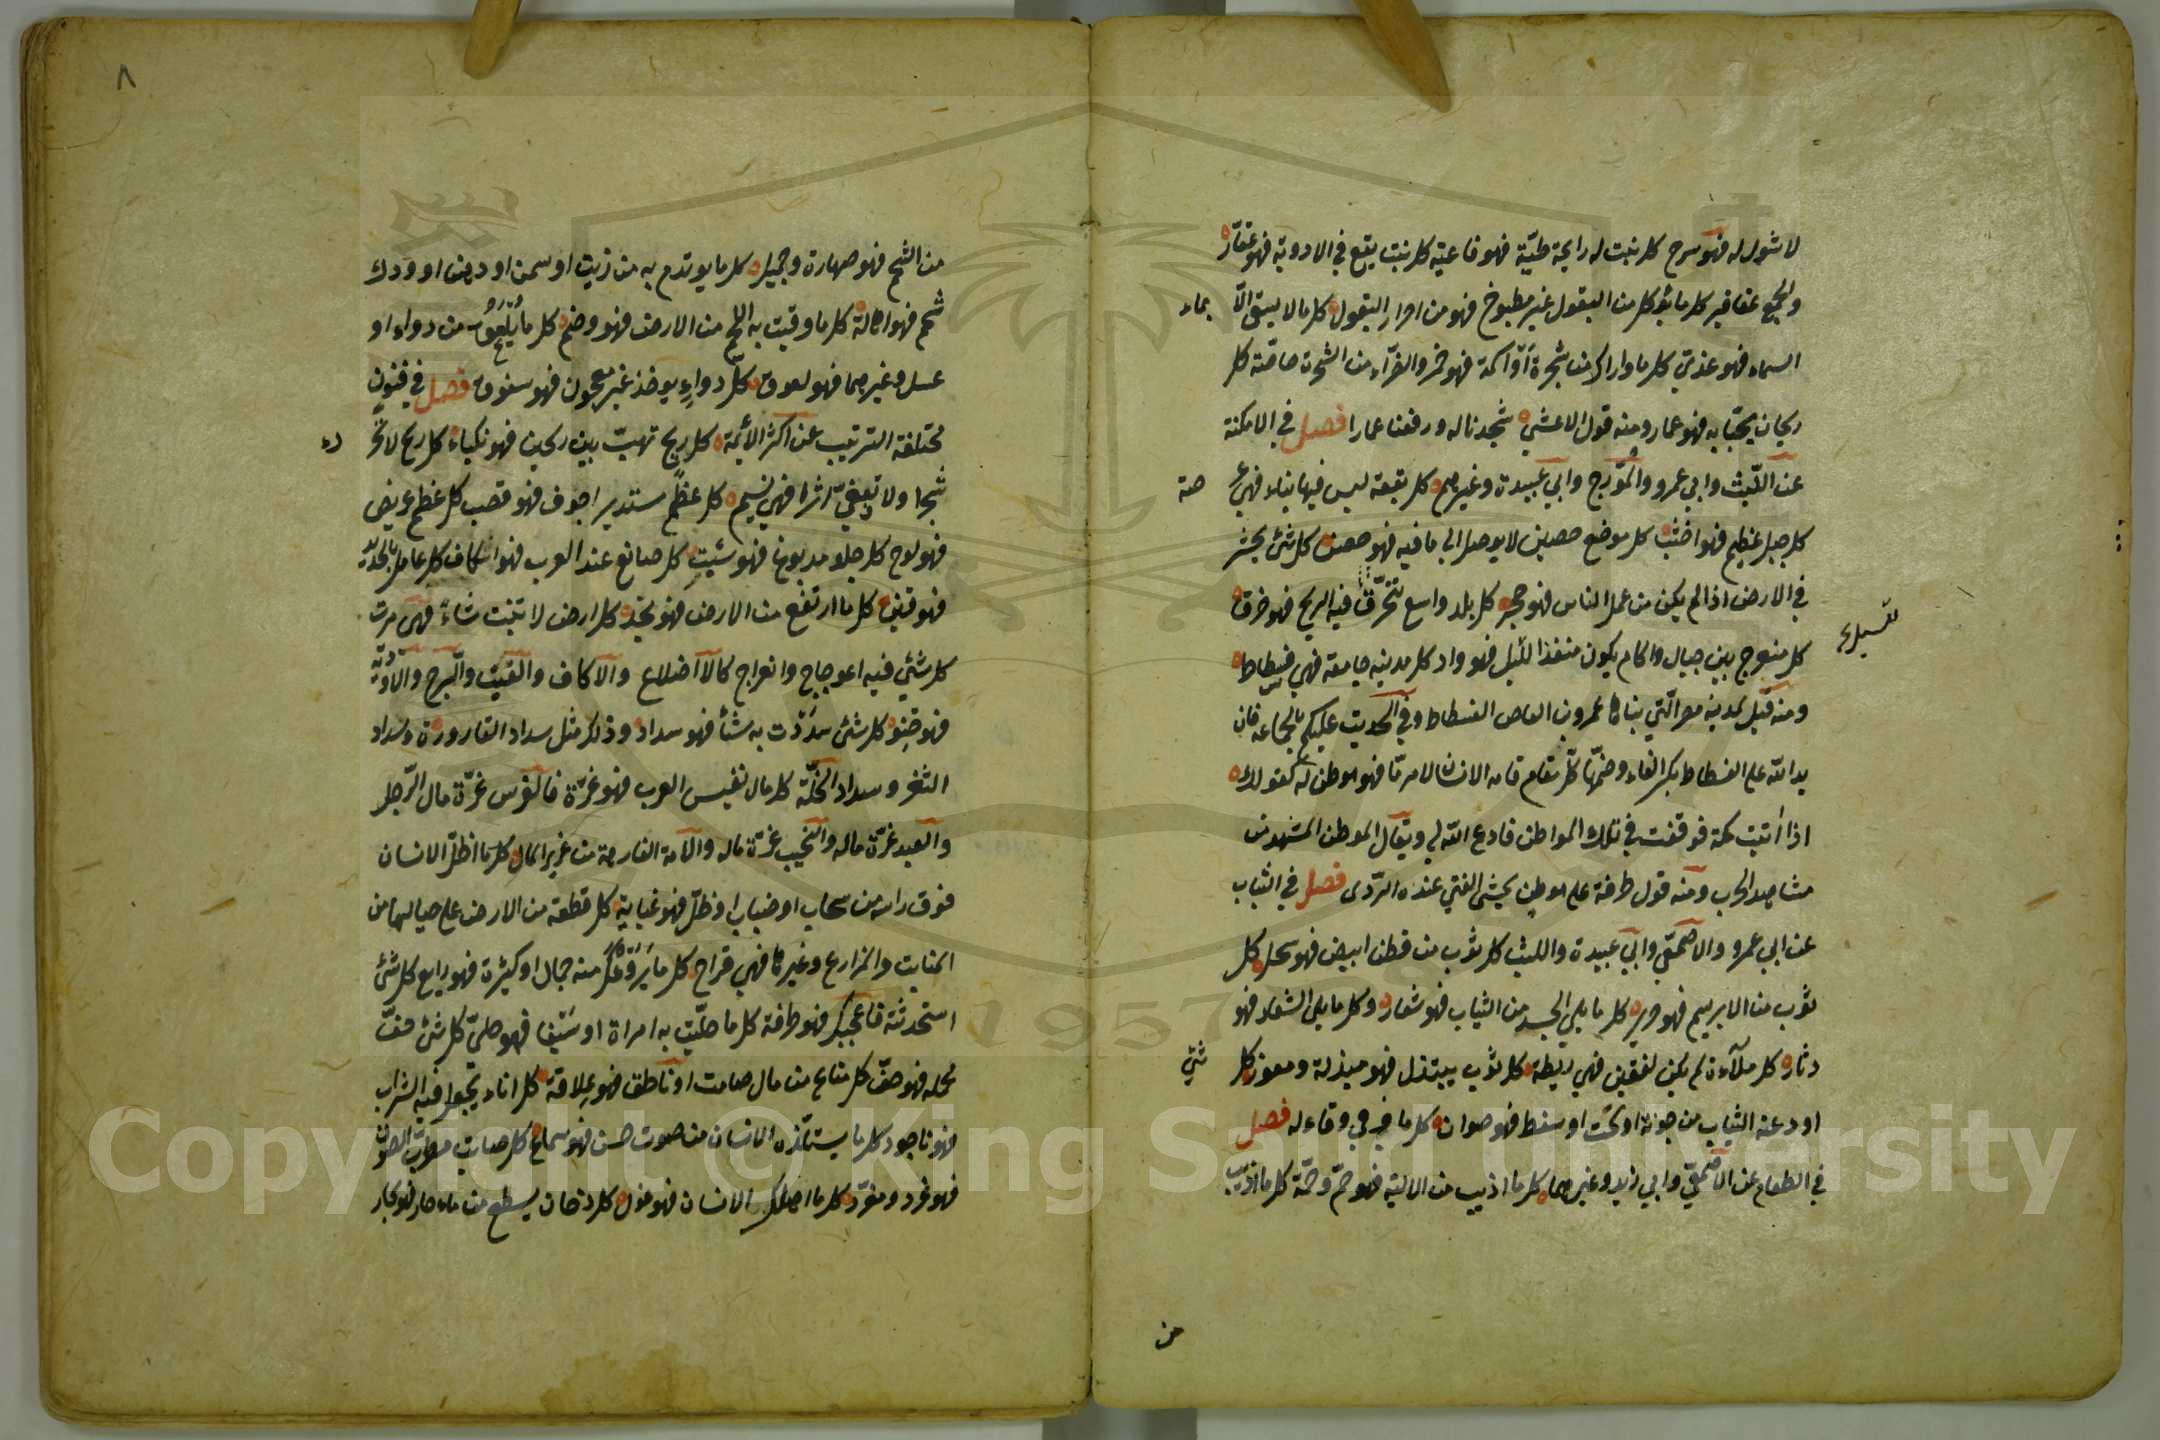 لا شوك له فهو سرح كل نبت له رايحة طيبة فهو فاغية كل نبت يقع في الادوية فهو عقار
والجمع عقاقير كل ما يؤكل من البقول غير مطبوخ فهو من احرار البقول كل ما لا يسقى الا بماء
السماء فهو عذي كل ما واراك من شجرة أو اكمة فهو خمر والضراء من الشجرة خاصة كل
ريحان يحيا به فهو عمار ومنه قول الاعشى سجدنا له ورفعنا عمارا فصل في الامكنة
عن الليث وابي عمرو والمؤرج وابي عبيدة وغيرهم كل بقعة ليس فيها بناء فهي عرصة
كل جبل عظيم فهو اخشب كل موضع حصين لا يوصل الى ما فيه فهو حصن كل شئ يحتفر
في الارض اذا لم يكن من عمل الناس فهو جحر كل بلد واسع تنخرق فيه الريح فهو خرق
كل منعرج بين جبال واكام يكون منفذا للسيل فهو واد كل مدينه جامعة فهي فسطاط
ومنه قيل لمدينة مصر التي بناها عمرو بن العاص الفسطاط وفي الحديث عليكم بالجماعه فان
يد الله على الفسطاط بكسر الفاء وضمها كل مقام قامه الانسان لامر ما فهو موطن له كقولك
اذا أتيت مكة فوقفت في تلك المواطن فادع الله لي ويقال الموطن المشهد من
مشاهد الحرب ومنه قول طرفة على موطن يخشى الفتى عنده الردى فصل في الثياب
عن ابي عمرو والاصمعي وابي عبيدة والليث كل ثوب من قطن ابيض فهو سحل كل
ثوب من الابريسم فهو حرير كل ما يلي الجسد من الثياب فهو شعار وكل ما يلي الشعار فهو
دثار كل ملآءة لم تكن لفقين فهي ريطة كل ثوب يبتذل فهو مبذلة ومعوز كل شئ
اودعته الثياب من جونة او تخت او سفط فهو صوان كل ما في وقاء له فصل
في الطعام عن الاصمعي وابي زيد وغيرهما كل ما اذيب من الالية فهو حم وحمة كل ما اذيب
من
٨
من الشحم فهو صهارة وجميل كل ما يوتدم به من زيت او سمن او دهن او ودك
شحم فهو اهالة كل ما وقيت به اللحم من الارض فهو وضم كل ما يلعق من دواء او
عسل وغيرهما فهو لعوق كل دواء يوخذ غير معجون فهو سفوف فصل في فنون
مختلفة الترتيب عن اكثر الأئمة كل ريح تهب بين ريحين فهو نكباء كل ريح لا تحرك
شجرا ولا تعفي اثرا فهي نسيم كل عظم مستدير اجوف فهو قصب كل عظم عريض
فهو لوح كل جلد مدبوغ فهو سبت كل صانع عند العرب فهو اسكاف كل عامل بالحديد
فهو قين كل ما ارتفع من الارض فهو نجد كل ارض لا تنبت شيأ فهي مرت
كل شئ فيه اعوجاج وانعراج كالاضلاع والاكاف والقتب والسرج والاودية
فهو حنو كل شئ سددت به شيأ فهو سداد وذلك مثل سداد القارورة وسداد
الثغر وسداد الخلة كل مال نفيس العرب فهو غرة فالفرس غرة مال الرجل
والعبد غرة ماله والنجيب غرة ماله والامة الفارهة من غرر المال كل ما اظل الانسان
فوق راسه من سحاب او ضباب او ظل فهو غياية كل قطعة من الارض على حيالها من
المنابت والمزارع وغيرها فهي قراح كل ما يروعك منه جمال او كثرة فهو رايع كل شئ
استحدثته فاعجبك فهو طرفة كل ما حليت به امراة او سيفا فهو حلي كل شئ خف
محمله فهو خف كل متاع من مال صامت او ناطق فهو علاقة كل اناء يجعل فيه الشراب
فهو ناجود كل ما يستلذه الانسان من صوت حسن فهو سماع كل صايت مطرب الصوت
فهو غرد ومغرد كل ما اهلك الانسان فهو غول كل دخان يسطع من ماء حار فهو بخار
Copyright © King Saud University
1957